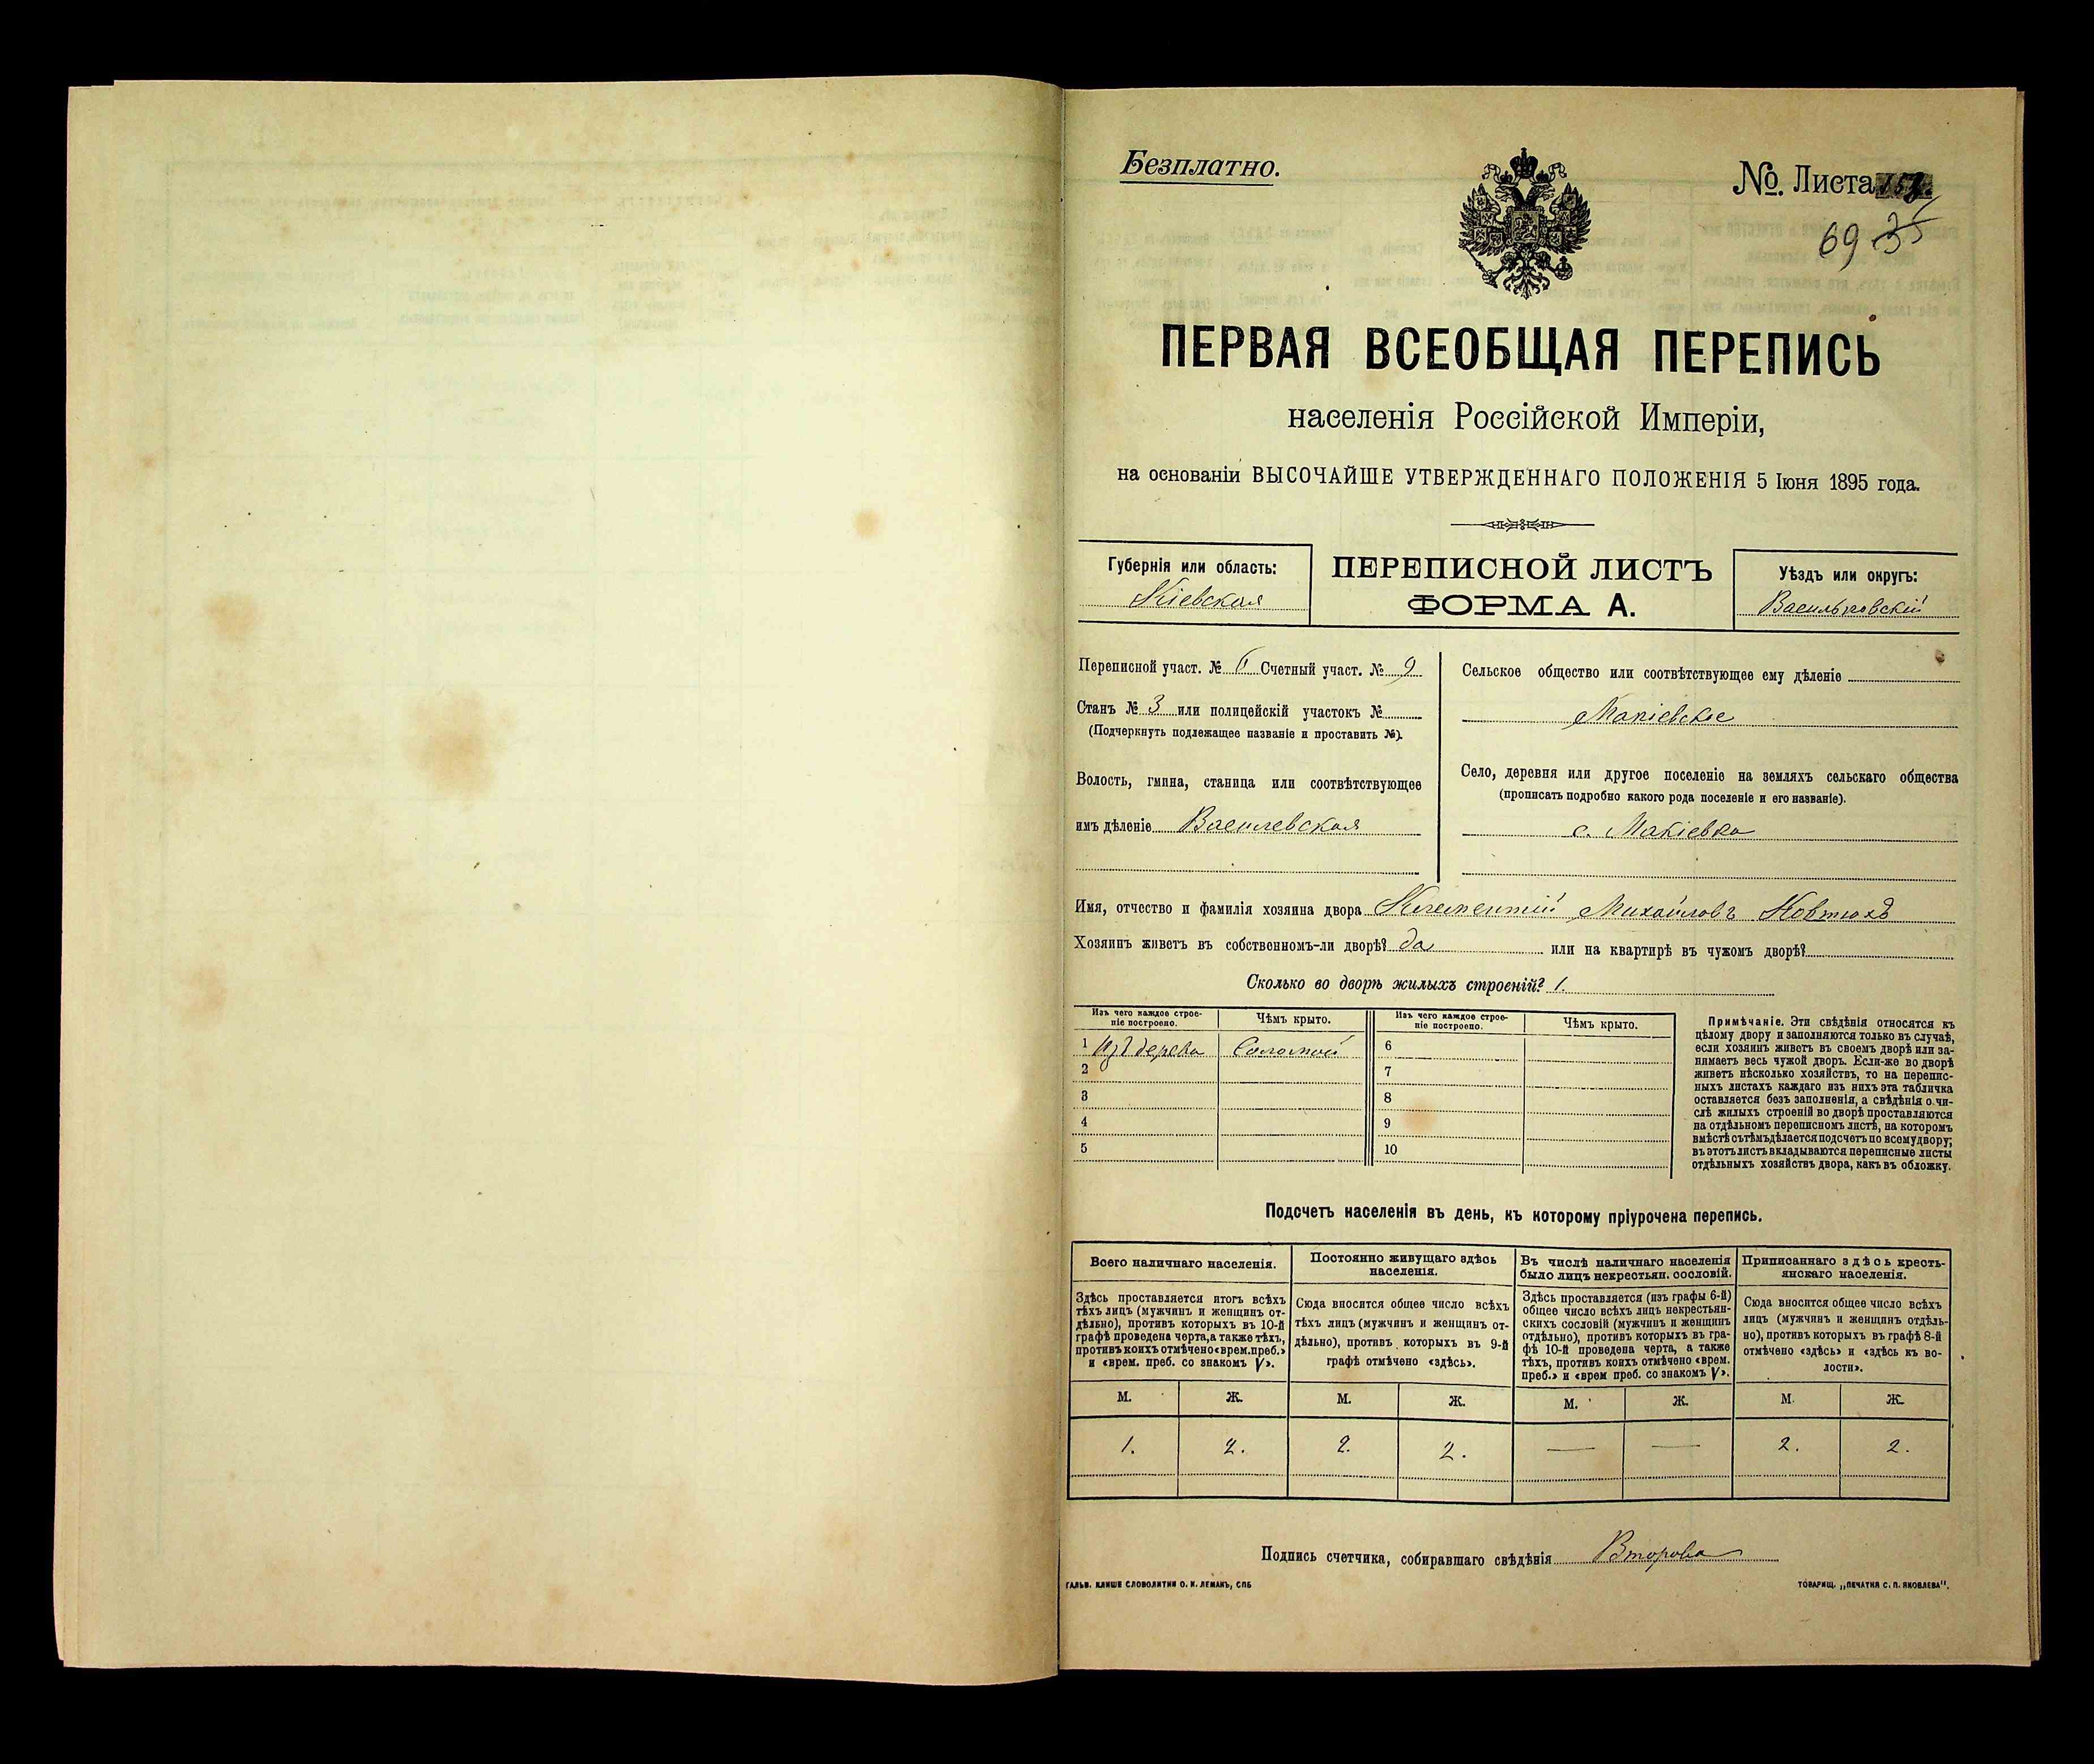 Безплатно.
№. Листа
69
ПЕРВАЯ ВСЕОБЩАЯ ПЕРЕПИСЬ
населенія Россійской Имперіи,
на основаніи ВЫСОЧАЙШЕ УТВЕРЖДЕННАГО ПОЛОЖЕНІЯ 5 Іюня 1895 года.
Губернія или область:
Кіевская
ПЕРЕПИСНОЙ ЛИСТЪ
ФОРМА А.
Уѣздъ или округъ:
Васильковскій
Переписной участ. № 6 Счетный участ. № 9
Станъ № 3 или полицейскій участокъ №
(Подчеркнуть подлежащее названіе и проставить №).
Волость, гмина, станица или соотвѣтствующее
имъ дѣленіе Василевская
Сельское общество или соотвѣтствующее ему дѣленіе
Макіевское
Село, деревня или другое поселеніе на земляхъ сельскаго общества
(прописать подробно какого рода поселеніе и его названіе).
с. Макіевка
Имя, отчество и фамилія хозяина двора Климентий Михайловъ Ковтюхъ
Хозяинъ живетъ въ собственномъ-ли дворѣ? да или на квартирѣ въ чужомъ дворѣ?
Сколько во дворѣ жилыхъ строеній? 1.
Изъ чего каждое строе-
ніе построено.
Чѣмъ крыто.
Изъ чего каждое строе-
ніе построено.
Чѣмъ крыто.
1 Изъ дерева Соломой 6
2 7
3 8
4 9
5 10
Примѣчаніе. Эти свѣдѣнія относятся къ
цѣлому двору и заполняются только въ случаѣ,
если хозяинъ живетъ въ своемъ дворѣ или за-
нимаетъ весь чужой дворъ. Если-же во дворѣ
живетъ нѣсколько хозяйствъ, то на перепис-
ныхъ листахъ каждаго изъ нихъ эта табличка
оставляется безъ заполненія, а свѣдѣнія о чи-
слѣ жилыхъ строеній во дворѣ проставляются
на отдѣльномъ переписномъ листѣ, на которомъ
вмѣстѣ съ тѣмъ дѣлается подсчетъ по всему двору;
въ этотъ листъ вкладываются переписные листы
отдѣльныхъ хозяйствъ двора, какъ въ обложку.
Подсчетъ населенія въ день, къ которому пріурочена перепись.
Всего наличнаго населенія.
Здѣсь проставляется итогъ всѣхъ
тѣхъ лицъ (мужчинъ и женщинъ от-
дѣльно), противъ которыхъ въ 10-й
графѣ проведена черта, а также тѣхъ,
противъ коихъ отмѣчено «врем. преб.»
и «врем. преб. со знакомъ V».
Постоянно живущаго здѣсь
населенія.
Сюда вносится общее число всѣхъ
тѣхъ лицъ (мужчинъ и женщинъ от-
дѣльно), противъ которыхъ въ 9-й
графѣ отмѣчено «здѣсь».
Въ числѣ наличнаго населенія
было лицъ некрестьян. сословій.
Здѣсь проставляется (изъ графы 6-й)
общее число всѣхъ лицъ некрестьян-
скихъ сословій (мужчинъ и женщинъ
отдѣльно), противъ которыхъ въ гра-
фѣ 10-й проведена черта, а также
тѣхъ, противъ коихъ отмѣчено «врем.
преб.» и «врем преб. со знакомъ V».
Приписаннаго здѣсь кресть-
янскаго населенія.
Сюда вносится общее число всѣхъ
лицъ (мужчинъ и женщинъ отдѣль-
но), противъ которыхъ въ графѣ 8-й
отмѣчено «здѣсь» и «здѣсь къ во-
лости».
М. Ж. М. Ж. М. Ж. М. Ж.
1. 2. 2. 2. — — 2. 2.
Подпись счетчика, собиравшаго свѣдѣнія Второва
ГАЛЬВ. КЛИШЕ СЛОВОЛИТНИ О. И. ЛЕМАНЪ, СПБ
ТОВАРИЩ. „ПЕЧАТНЯ С. П. ЯКОВЛЕВА".